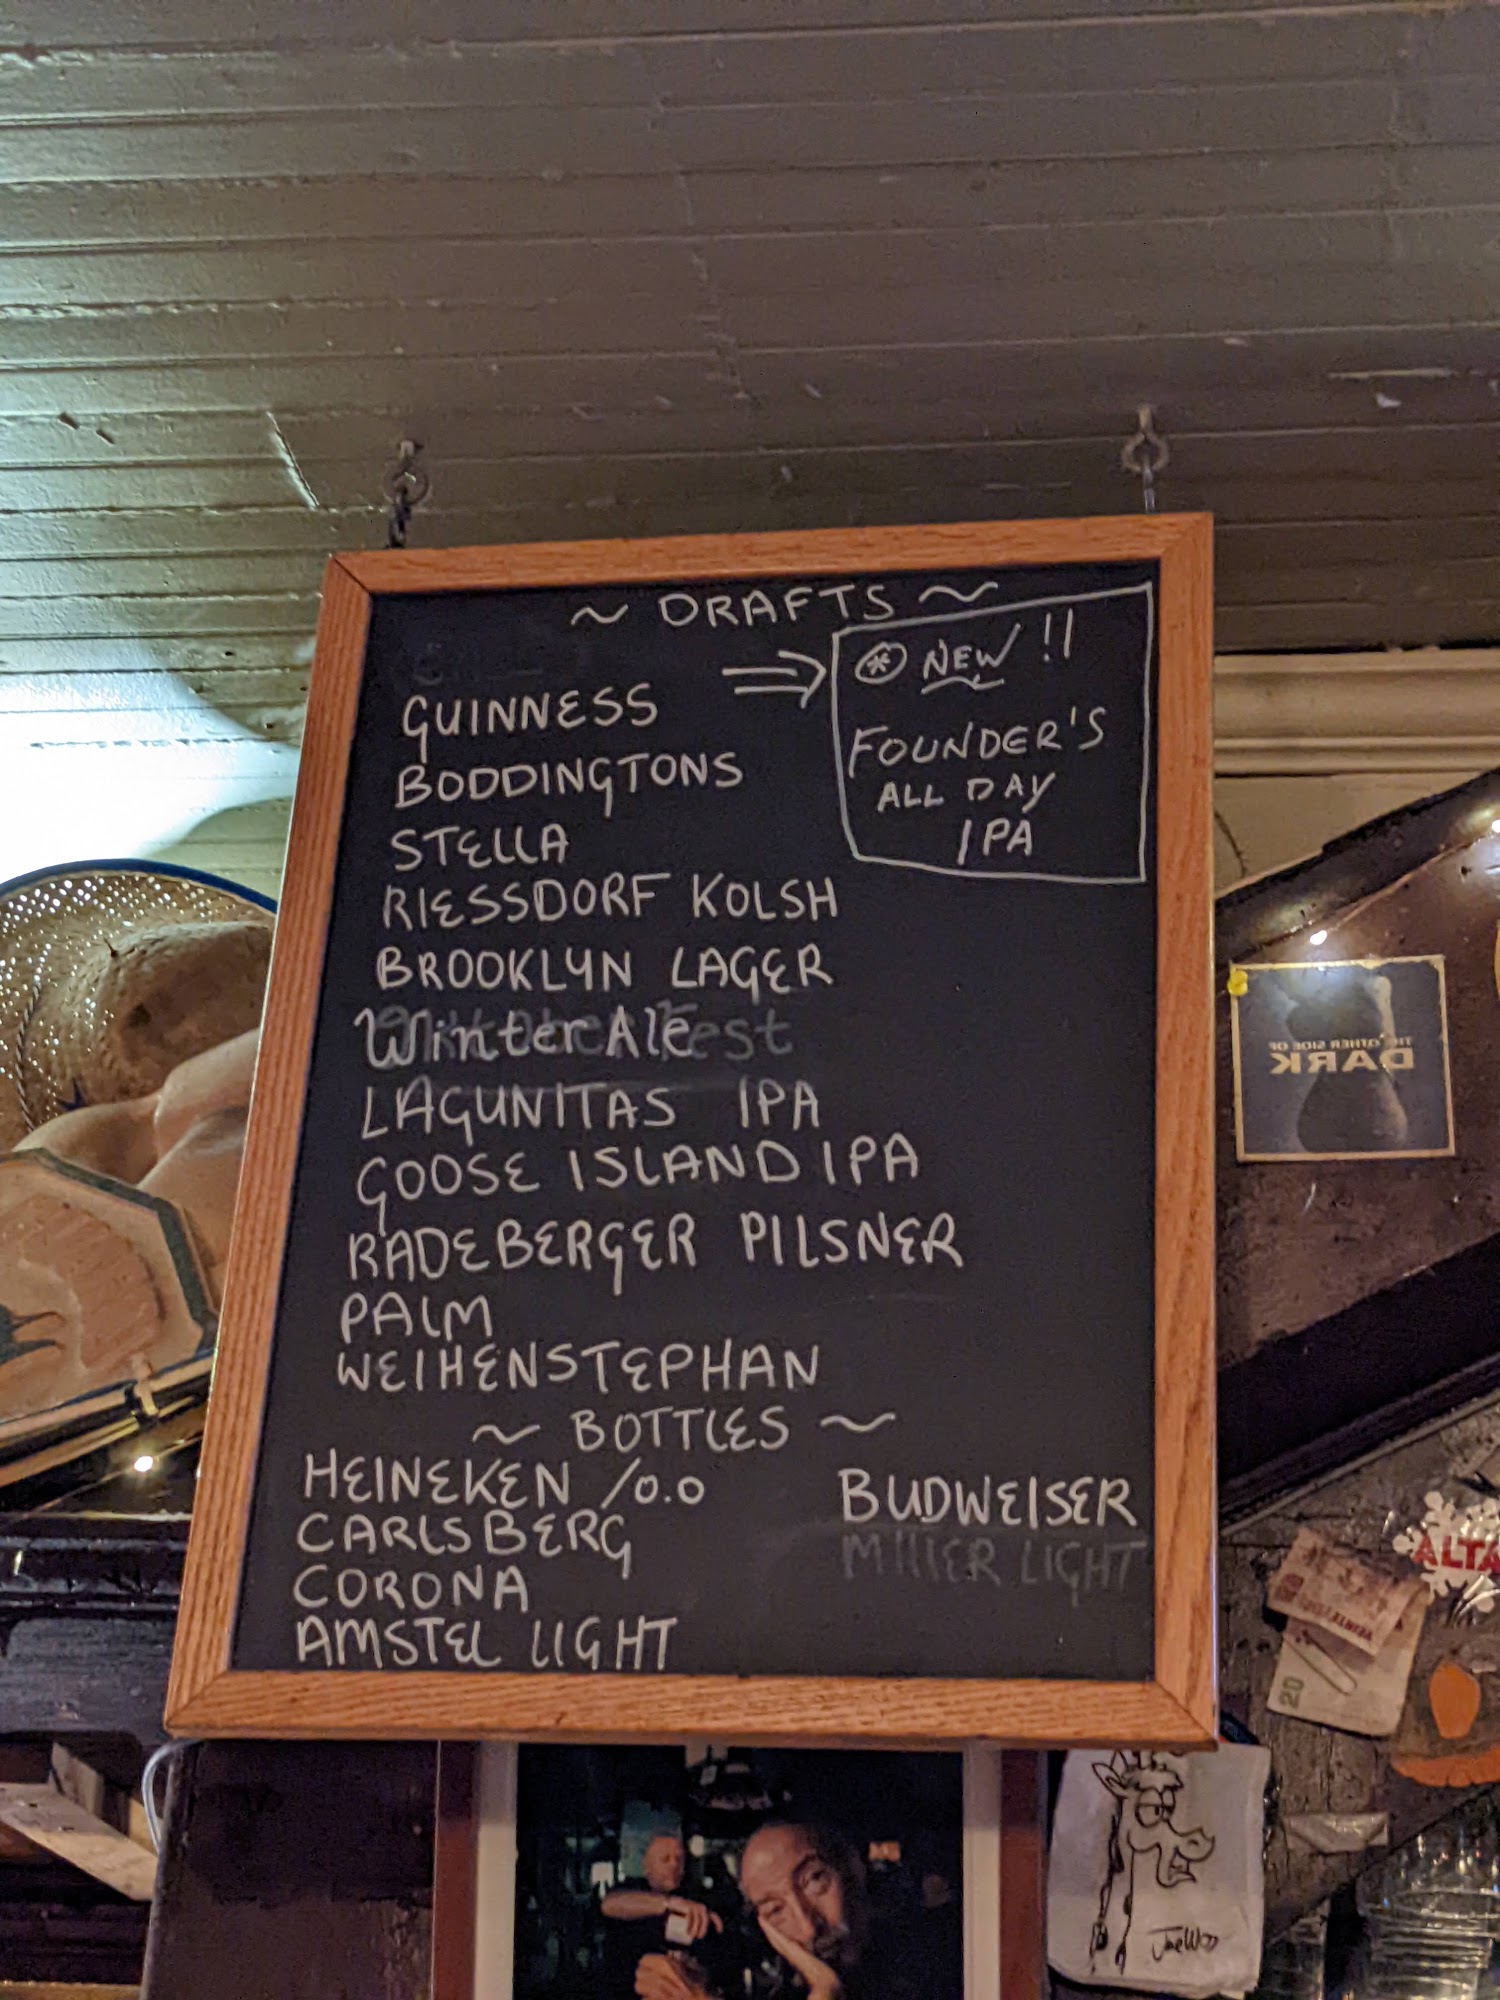 ~ DRAFTS ~
⇒ ⊛ NEW !!
FOUNDER'S
ALL DAY
IPA
GUINNESS
BODDINGTONS
STELLA
RIESSDORF KOLSH
BROOKLYN LAGER
Winter Ale
LAGUNITAS IPA
GOOSE ISLAND IPA
RADEBERGER PILSNER
PALM
WEIHENSTEPHAN
~ BOTTLES ~
HEINEKEN /0.0
CARLSBERG
CORONA
AMSTEL LIGHT
BUDWEISER
MILLER LIGHT
THE OTHER SIDE OF
DARK
ALTA
20
JaeWoo